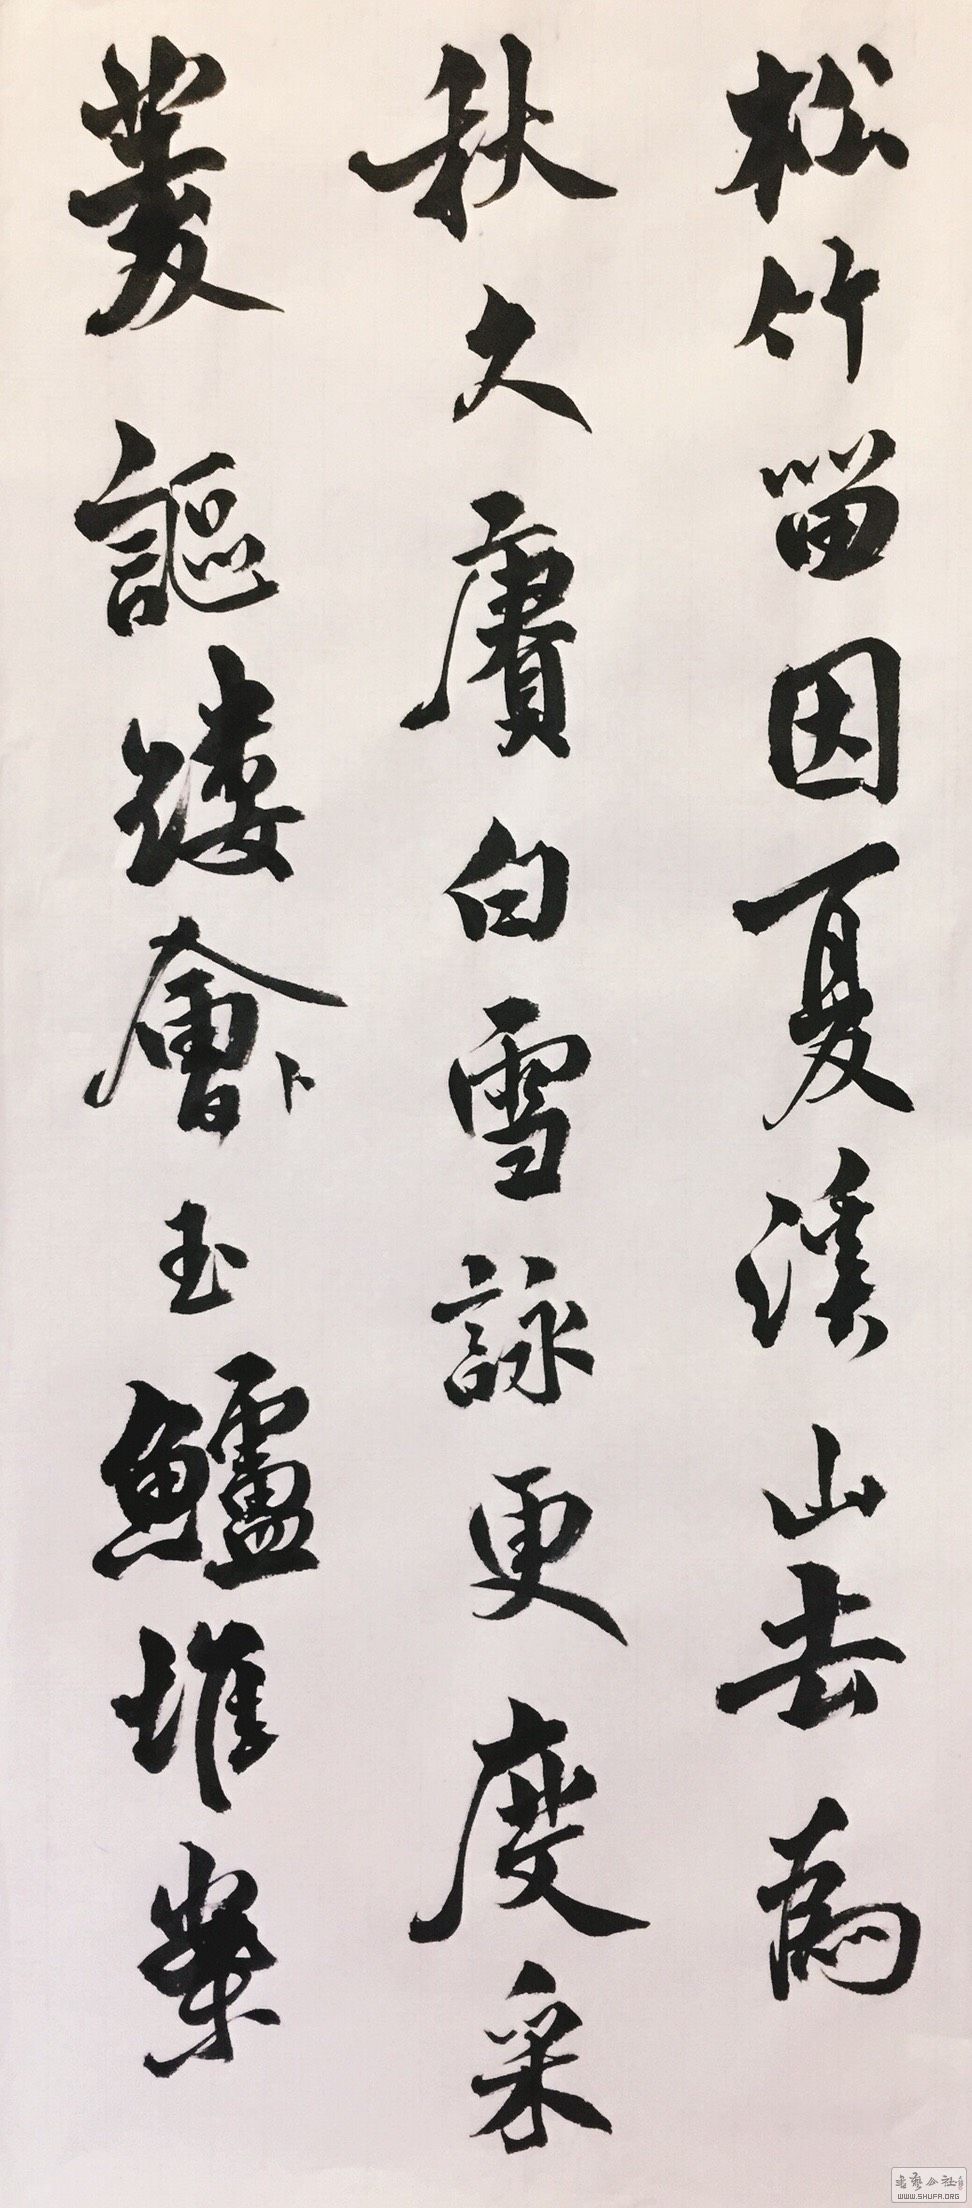 松竹留因夏溪山去為
秋久賡白雪詠更度采
菱謳縷會卜玉鱸堆案
書藝公社
WWW.SHUFA.ORG